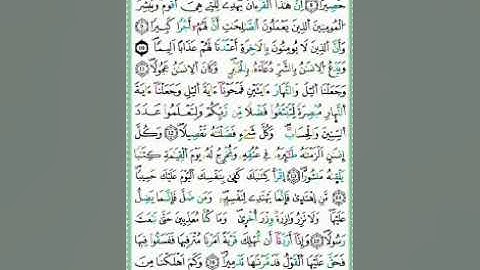 حَصِيراً ۝ اِنَّ هَٰذَا اَلْقُرْءَانَ يَهْدِے لِلتِے هِيَ أَقْوَمُ وَيُبَشِّرُ
اُلْمُومِنِينَ اَلذِينَ يَعْمَلُونَ اَلصَّٰلِحَٰتِ أَنَّ لَهُمُۥٓ أَجْراً كَبِيراً ۝
وَأَنَّ اَلذِينَ لَا يُومِنُونَ بِالَاخِرَةِ أَعْتَدْنَا لَهُمْ عَذَاباً اَلِيماً ۝
وَيَدْعُ اُلِانسَٰنُ بِالشَّرِّ دُعَآءَهُۥ بِالْخَيْرِ وَكَانَ اَلِانسَٰنُ عَجُولاً ۝
وَجَعَلْنَا اَليْلَ وَالنَّهَارَ ءَايَتَيْنِ فَمَحَوْنَآ ءَايَةَ اَليْلِ وَجَعَلْنَآ ءَايَةَ
اَلنَّهَارِ مُبْصِرَةً لِّتَبْتَغُواْ فَضْلاً مِّن رَّبِّكُمْ وَلِتَعْلَمُواْ عَدَدَ
اَلسِّنِينَ وَالْحِسَابَ وَكُلَّ شَےْءٍ فَصَّلْنَٰهُ تَفْصِيلاً ۝ وَكُلَّ
إِنسَٰنٍ اَلْزَمْنَٰهُ طَٰٓئِرَهُۥ فِے عُنُقِهِۦ وَنُخْرِجُ لَهُۥ يَوْمَ اَلْقِيَٰمَةِ كِتَٰباً
يَلْقَيٰهُ مَنشُوراً ۝ اِقْرَأْ كِتَٰبَكَ كَفَيٰ بِنَفْسِكَ اَلْيَوْمَ عَلَيْكَ حَسِيباً
۝ مَّنِ اِهْتَدَيٰ فَإِنَّمَا يَهْتَدِے لِنَفْسِهِۦ وَمَن ضَلَّ فَإِنَّمَا يَضِلُّ
عَلَيْهَا وَلَا تَزِرُ وَازِرَةٌ وِزْرَ أُخْرَيٰ وَمَا كُنَّا مُعَذِّبِينَ حَتَّيٰ نَبْعَثَ
رَسُولاً ۝ وَإِذَآ أَرَدْنَآ أَن نُّهْلِكَ قَرْيَةً اَمَرْنَا مُتْرَفِيهَا فَفَسَقُواْ فِيهَا
فَحَقَّ عَلَيْهَا اَلْقَوْلُ فَدَمَّرْنَٰهَا تَدْمِيراً ۝ وَكَمَ اَهْلَكْنَا مِنَ